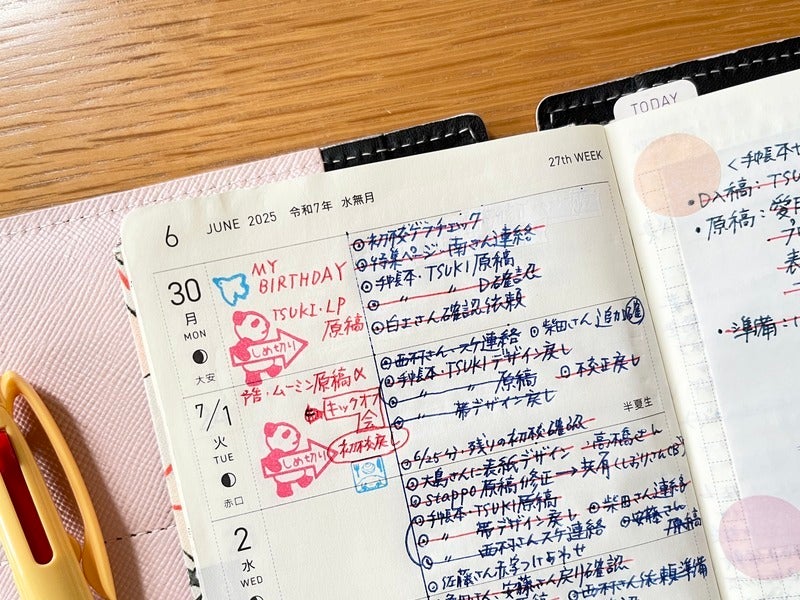 6 JUNE 2025 令和7年 水無月
27th WEEK
TODAY
30
月
MON
大安
MY
BIRTHDAY
TSUKI・LP
原稿
しめ切り
初校ゲラチェック
特集ページ・南さん連絡
手帳本・TSUKI原稿
〃 〃 D確認
白土さん確認依頼
7/1
火
TUE
赤口
ムーミン原稿
キックオフ
会
初校戻し
しめ切り
西村さん・スケ連絡
柴田さん追加
手帳本・TSUKIデザイン戻し
〃 〃 原稿
〃 帯デザイン戻し
半夏生
2
水
WED
6/25分・残りの初校確認
大島さんに表紙デザイン
stappo原稿修正→共有
手帳本・TSUKI原稿
柴田さん連絡
〃 帯デザイン戻し
安藤さん
原稿
〃 西村さんスケ連絡
佐藤さん赤字つけあわせ
安藤さん戻り確認
西村さん依頼準備
<手帳本
・原稿:
・準備: